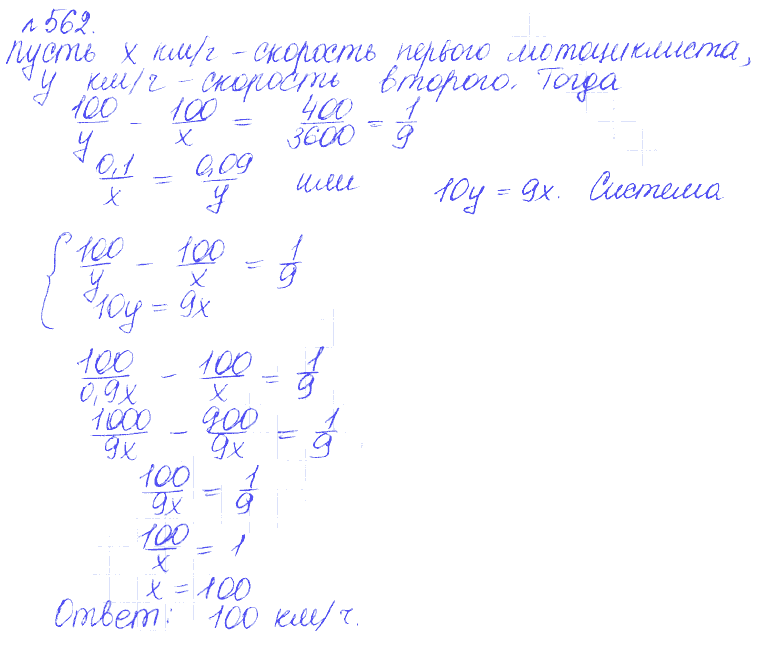 №562.
Пусть x км/ч – скорость первого мотоциклиста,
y км/ч – скорость второго. Тогда
100/y - 100/x = 400/3600 = 1/9
0,1/x = 0,09/y или 10y = 9x. Система
{ 100/y - 100/x = 1/9
10y = 9x
100/0,9x - 100/x = 1/9
1000/9x - 900/9x = 1/9
100/9x = 1/9
100/x = 1
x = 100
Ответ: 100 км/ч.